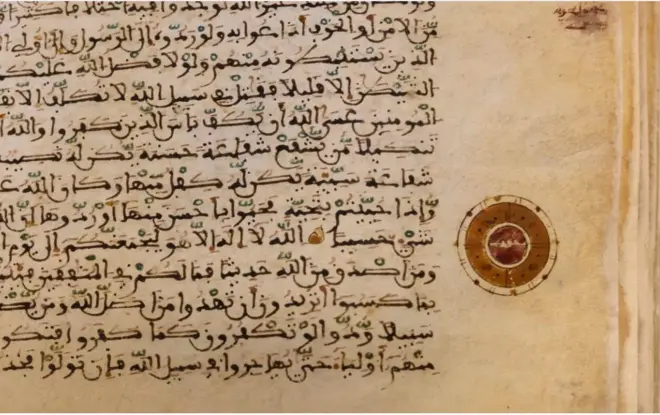 غير الله لوجدوا فيه اختلافا كثيرا
من الامن أو الخوف اذاعوا به ولو ردوه إلى الرسول وإلى أولي
الذين يستنبطونه منهم ولولا فضل الله عليكم
الشيطن إلا قليلا فقتل في سبيل الله لا تكلف إلا
المومنين عسى الله أن يكف بأس الذين كفروا والله
تنكيلا من يشفع شفاعة حسنة يكن له نصيب
شفاعة سيئة يكن له كفل منها وكان الله
وإذا حييتم بتحية فحيوا بأحسن منها أو ردوها إن
شيء حسيبا الله لا اله الا هو ليجمعنكم إلى يوم
ومن اصدق من الله حديثا فما لكم في المنفقين
بما كسبوا أتريدون أن تهدوا من اضل الله ومن
سبيلا ودوا لو تكفرون كما كفروا
منهم أولياء حتى يهاجروا في سبيل الله فإن تولوا